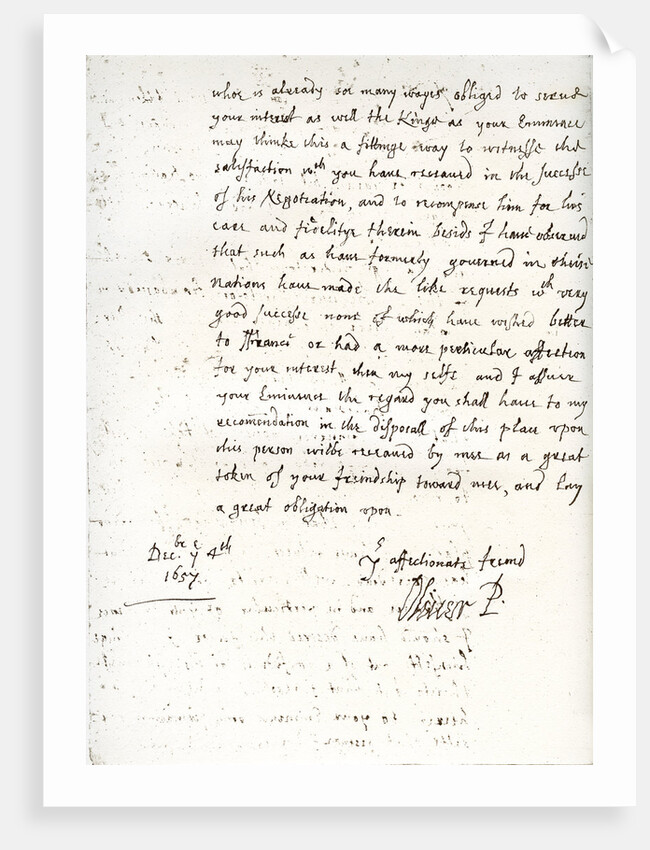 whoe is already soe many wayes obliged to serve
your interest as well the Kings as your Eminence
may thinke this a fittinge way to witnesse the
satisfaction wth you have receaved in the successe
of his Negotiation, and to recompense him for his
care and fidelitye therein besids I have observed
that such as have formerly governed in theise
Nations have made the like requests wth very
good successe none of which have wished better
to ffrance or had a more perticular affection
for your interest then my selfe and I assure
your Eminence the regard you shall have to my
recomendation in the disposall of this place upon
this person wilbe receaved by mee as a great
token of your friendship toward mee, and lay
a great obligation upon
Decbr ye 4th
1657
Yr affectionate freind
Oliver P.